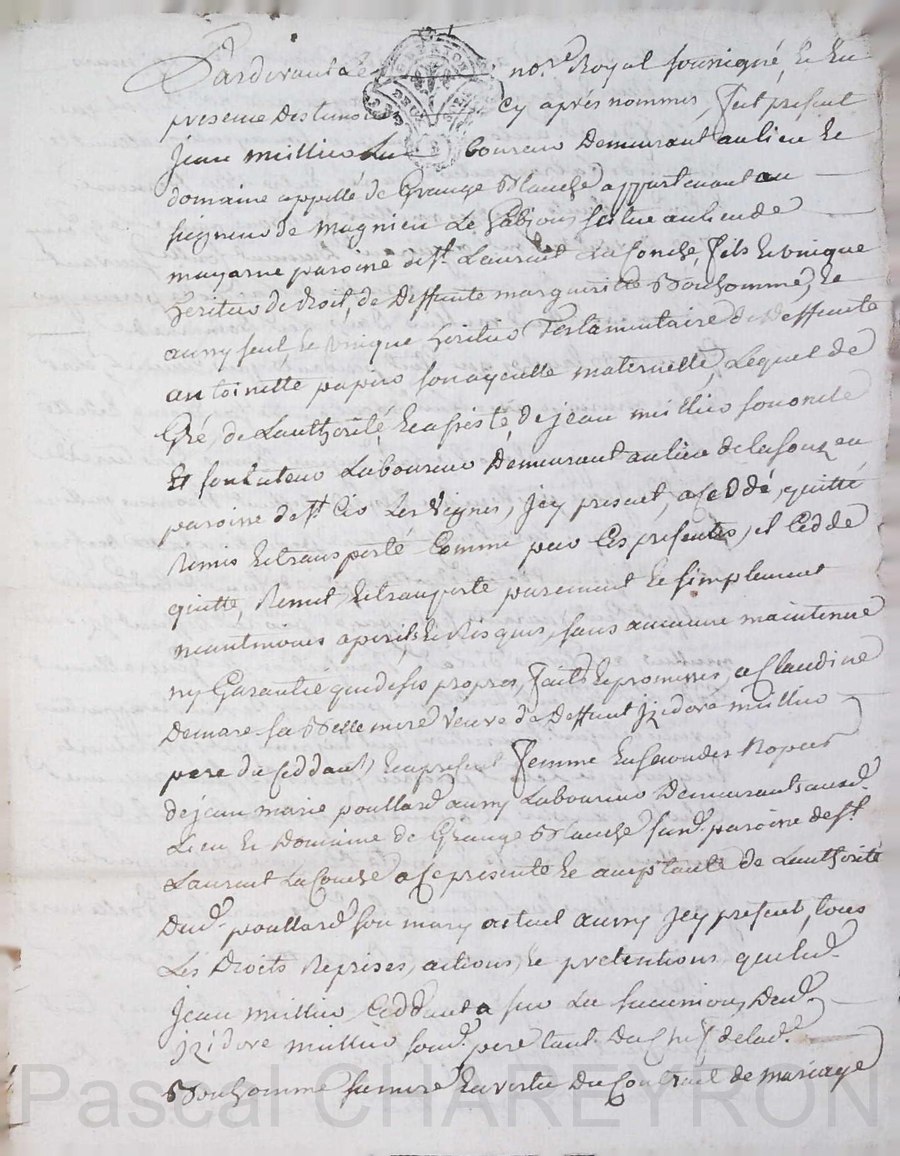 Pardevant le no.re Royal soussigné, et En
presence des temoins cy aprés nommes, fut present
jean millier Laboureur Demeurant au lieu et
domaine appellé de Grange Blanche appartenant au
seigneur de magnieu Le Gabion, situé au lieu de
mayarne paroisse de st. Laurent La Conche, fils et unique
heritier de droit, de deffunte margueritte Bonhomme, et
aussy seul et unique heritier Testamentaire de deffunte
antoinette papiro son ayeulle maternelle, Lequel de
Gré, de Lauthorité et assisté de jean millier son oncle
Et son tuteur Laboureur Demeurant au lieu de
paroisse de st. Cir Les Vignes, jcy present, a ceddé, quitté
Remis et transporté Comme par Ces presentes, il cedde
quitte, Remet, et transporte purement et simplement
neantmoins a perils et Risques, sans aucune maintenue
ny Garantie que de ses propres, faits et promesses, a Claudine
Demare sa Belle mere veuve de Deffunt jzidore millier
pere du Ceddant, et a present femme En secondes Nopces
de jean marie poullard aussy Laboureur Demeurants aud.
Lieu et Domaine de Grange Blanche susd. paroisse de st.
Laurent La Conche a ce presente et acceptante de Lauthorité
Dud. poullard son mary actuel aussy jcy present, tous
Les Droits Reprises, actions, et pretentions que led.
jean millier Ceddant a sur La succession, Dud.
jzidore millier sond. pere tant Du Chef de lad.
Bonhomme sa mere En vertu Du Contrat de mariage
Pascal CHAREYRON